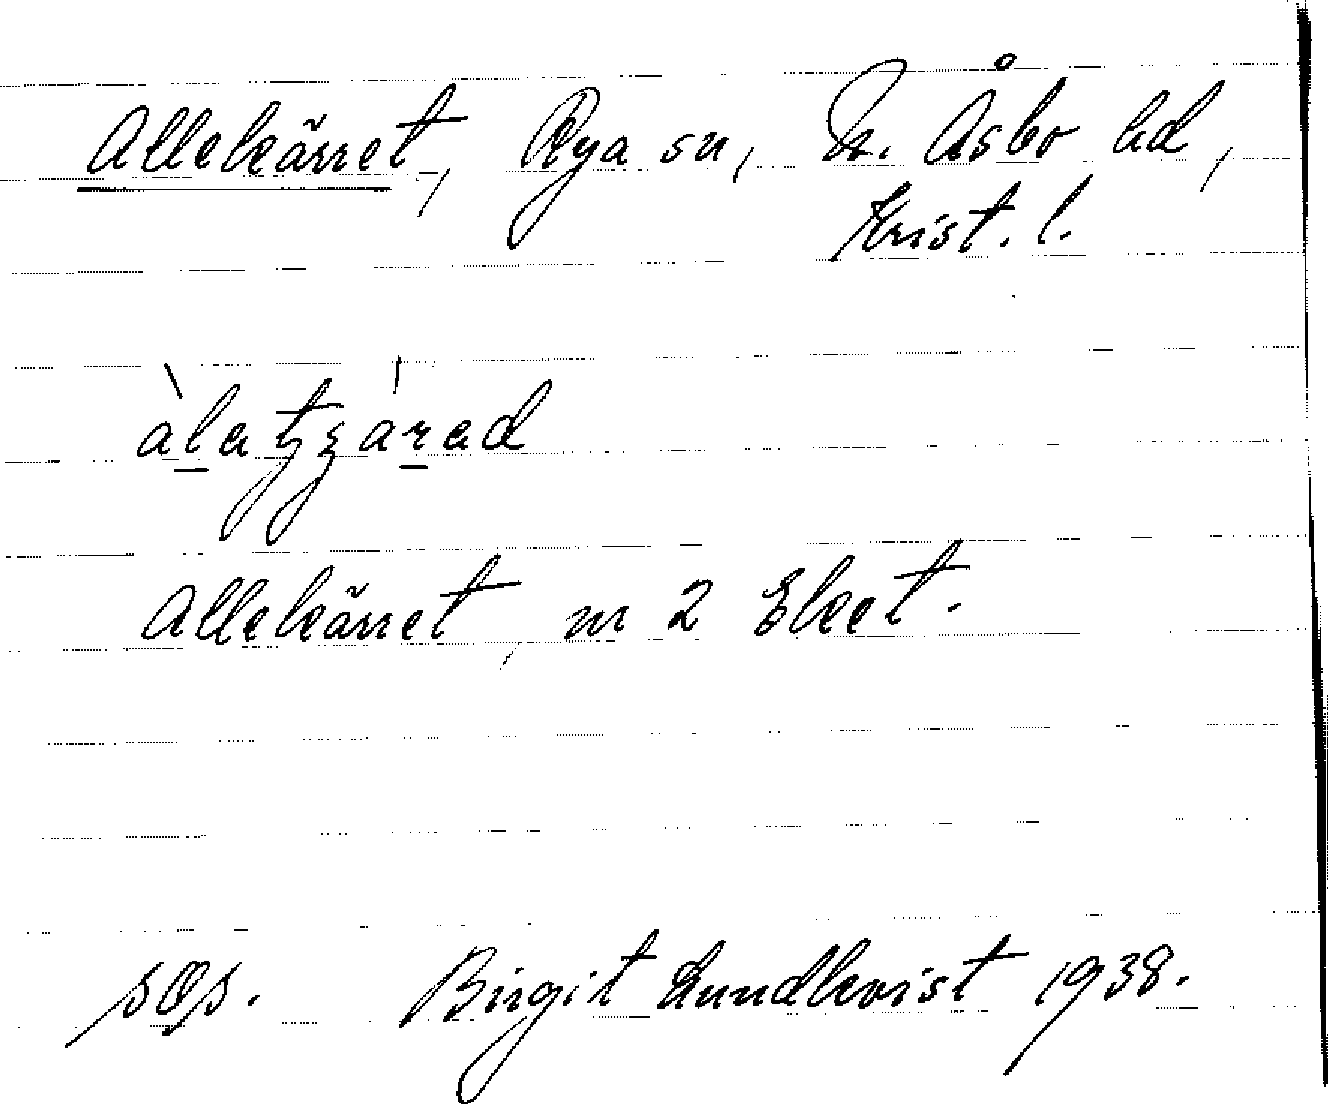 Allekärret, Rya sn, N. Åsbo hd,
Krist. l.
Allekärret, nr 2 Eket.
sOs. Birgit Lundkvist 1938.